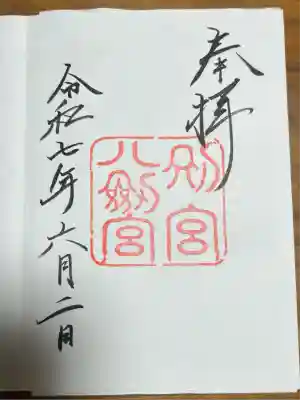 奉拝
別宮
八剱宮
令和七年六月二日